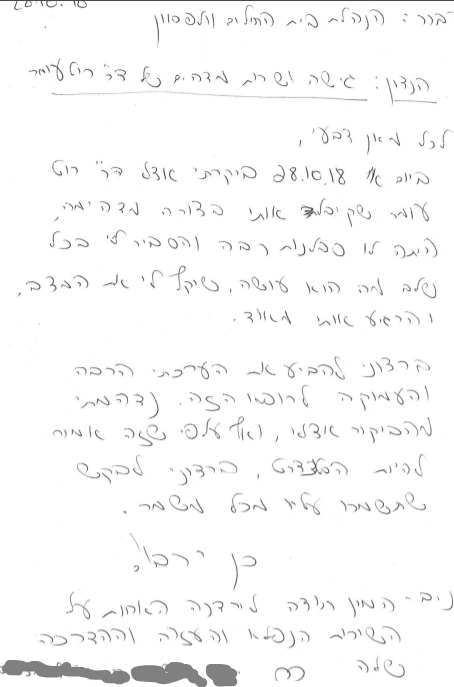 28.10.18
לכבוד: הנהלת בית החולים וולפסון
הנדון: גישה ושרות מדהים של ד״ר רוט עומר
לכל מאן דבעי,
ביום א׳ 28.10.18 ביקרתי אצל ד״ר רוט
עומר שקיבל אותי בצורה מדהימה,
היתה לו סבלנות רבה והסביר לי בכל
שלב מה הוא עושה, שיקף לי את המצב,
והרגיע אותי מאוד.
ברצוני להביע את הערכתי הרבה
והעמוקה לרופא הזה. נדהמתי
מהביקור אצלו, ואף על פי שזה אמור
להיות הסטנדרט, ברצוני לבקש
שתשמרו עליו מכל משמר.
כן ירבו!
נ.ב - המון תודה ל האחות על
השירות הנפלא והעזרה וההדרכה
שלה